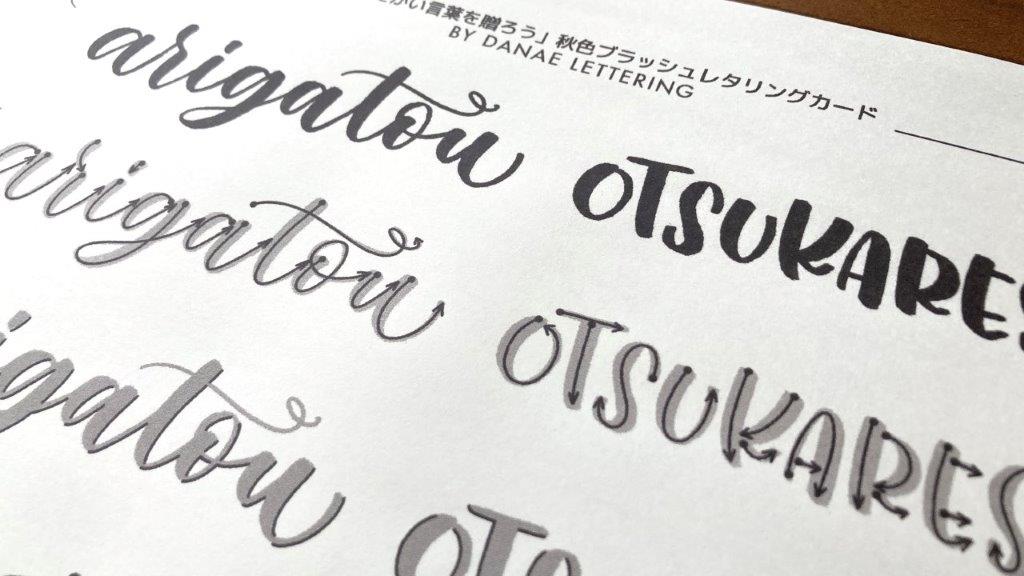 い言葉を贈ろう」秋色ブラッシュレタリングカード
BY DANAE LETTERING
arigatou
OTSUKARES
arigatou
OTSUKARES
igatou
OTS